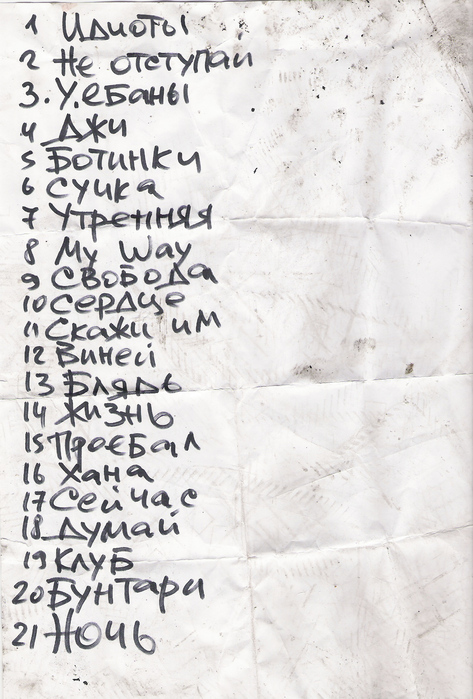 1 Идиоты
2 Не отступай
3. У.ебаны
4 Джи
5 Ботинки
6 Сучка
7 Утренняя
8 My Way
9 Свобода
10 Сердце
11 Скажи им
12 Виней
13 Блядь
14 Жизнь
15 Проебал
16 Хана
17 Сейчас
18 Думай
19 Клуб
20 Бунтари
21 Ночь